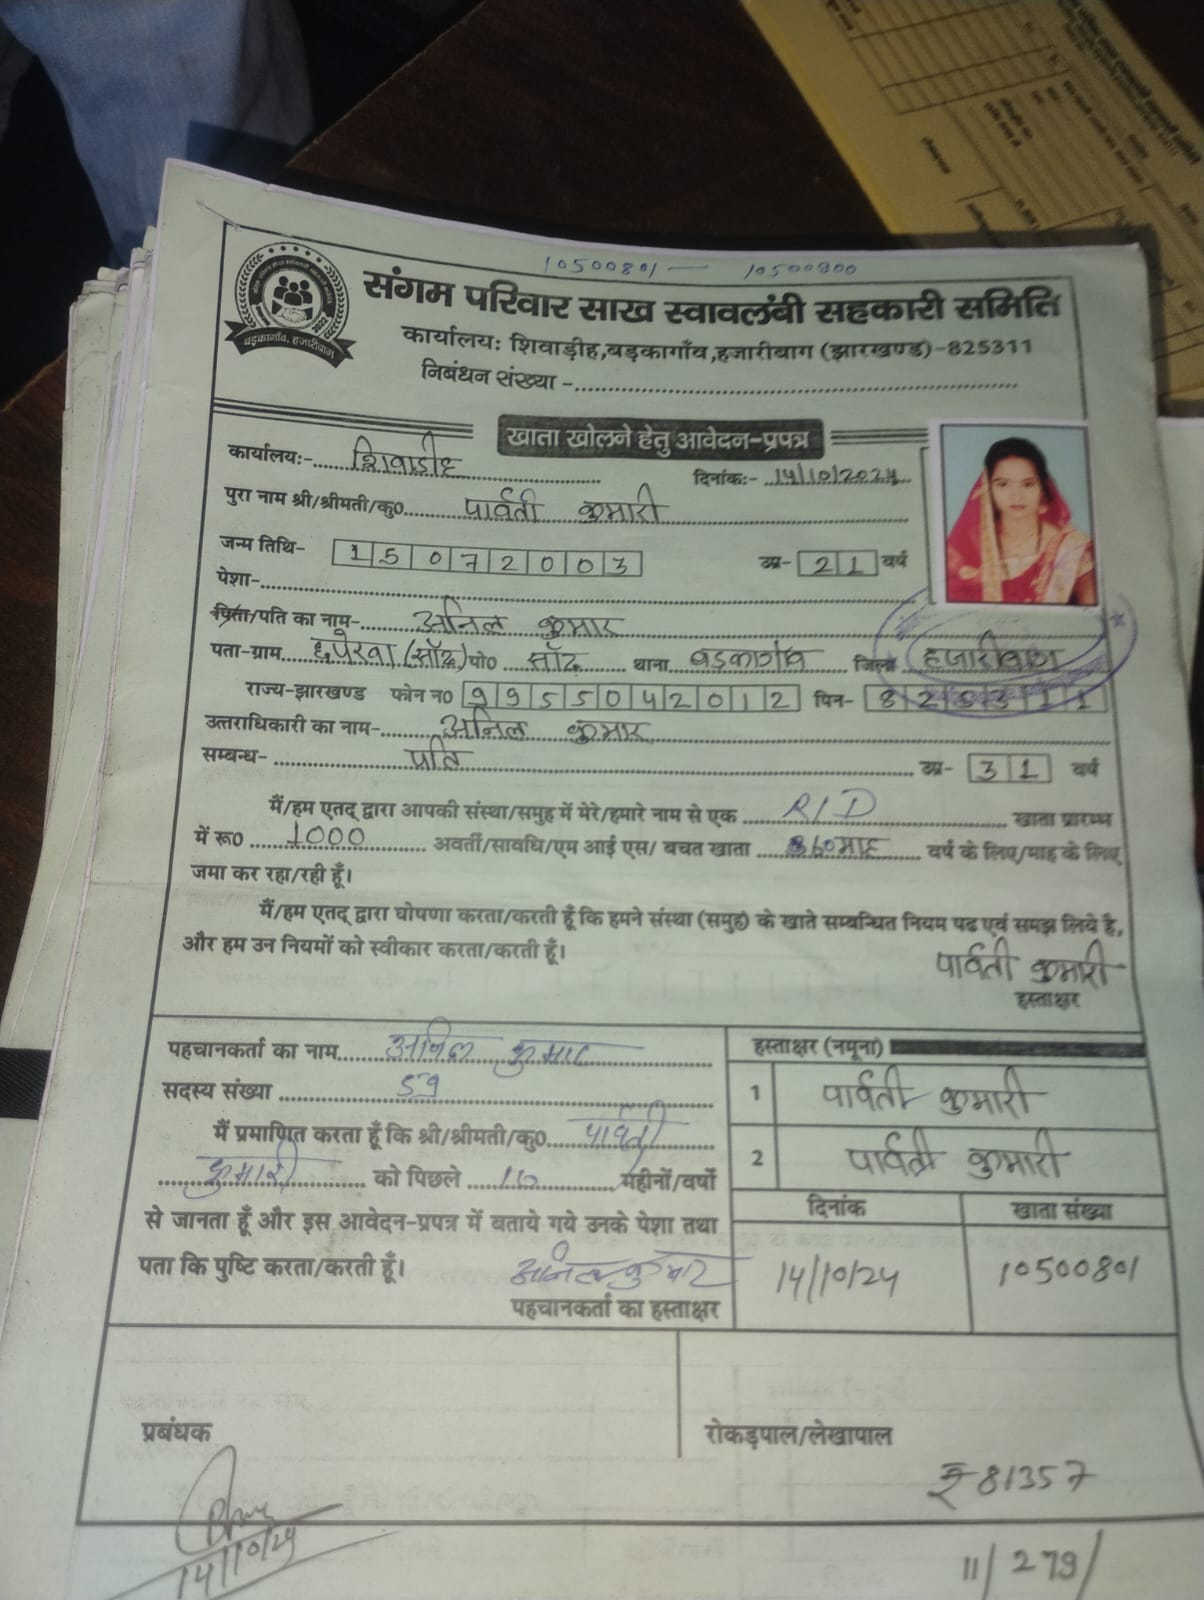 10500801 — 10500800
संगम परिवार साख स्वावलंबी सहकारी समिति
कार्यालय: शिवाड़ीह,बड़कागाँव,हजारीबाग (झारखण्ड)-825311
निबंधन संख्या -
बड़कागाँव, हजारीबाग
2022
खाता खोलने हेतु आवेदन-प्रपत्र
कार्यालय:- शिवाडीह दिनांक:- 14/10/2024
पुरा नाम श्री/श्रीमती/कु0 पार्वती कुमारी
जन्म तिथि- 15072003 उम्र- 21 वर्ष
पेशा-
पिता/पति का नाम- अनिल कुमार
पता-ग्राम छपेरवा (साँढ) पो0 साँढ थाना बड़कागांव जिला हजारीबाग
राज्य-झारखण्ड फोन न0 9955042012 पिन- 825311
उत्तराधिकारी का नाम- अनिल कुमार
सम्बन्ध- पति उम्र- 31 वर्ष
मैं/हम एतद् द्वारा आपकी संस्था/समुह में मेरे/हमारे नाम से एक R/D खाता प्रारम्भ
में रू0 1000 अवर्ती/सावधि/एम आई एस/ बचत खाता 60माह वर्ष के लिए/माह के लिए
जमा कर रहा/रही हूँ।
मैं/हम एतद् द्वारा घोषणा करता/करती हूँ कि हमने संस्था (समुह) के खाते सम्बन्धित नियम पढ एवं समझ लिये है,
और हम उन नियमों को स्वीकार करता/करती हूँ।
पार्वती कुमारी
हस्ताक्षर
पहचानकर्ता का नाम अनिल कुमार
सदस्य संख्या 59
मैं प्रमाणित करता हूँ कि श्री/श्रीमती/कु0 पार्वती
कुमारी को पिछले 10 महीनों/वर्षो
से जानता हूँ और इस आवेदन-प्रपत्र में बताये गये उनके पेशा तथा
पता कि पुष्टि करता/करती हूँ।
अनिल कुमार
पहचानकर्ता का हस्ताक्षर
हस्ताक्षर (नमूना)
1 पार्वती कुमारी
2 पार्वती कुमारी
दिनांक खाता संख्या
14/10/24 10500801
प्रबंधक रोकड़पाल/लेखापाल
₹ 81357
14/10/24
11/279/